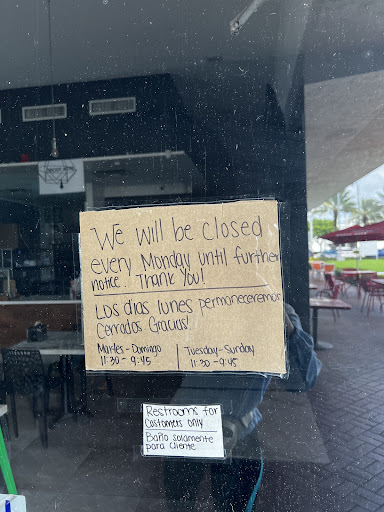 We will be closed
every Monday until further
notice. Thank you!
Los dias lunes permaneceremos
Cerrados Gracias!
Martes-Domingo
11:30 - 9:45
Tuesday-Sunday
11:30 - 9:45
Restrooms for
customers only
Baño solamente
para cliente